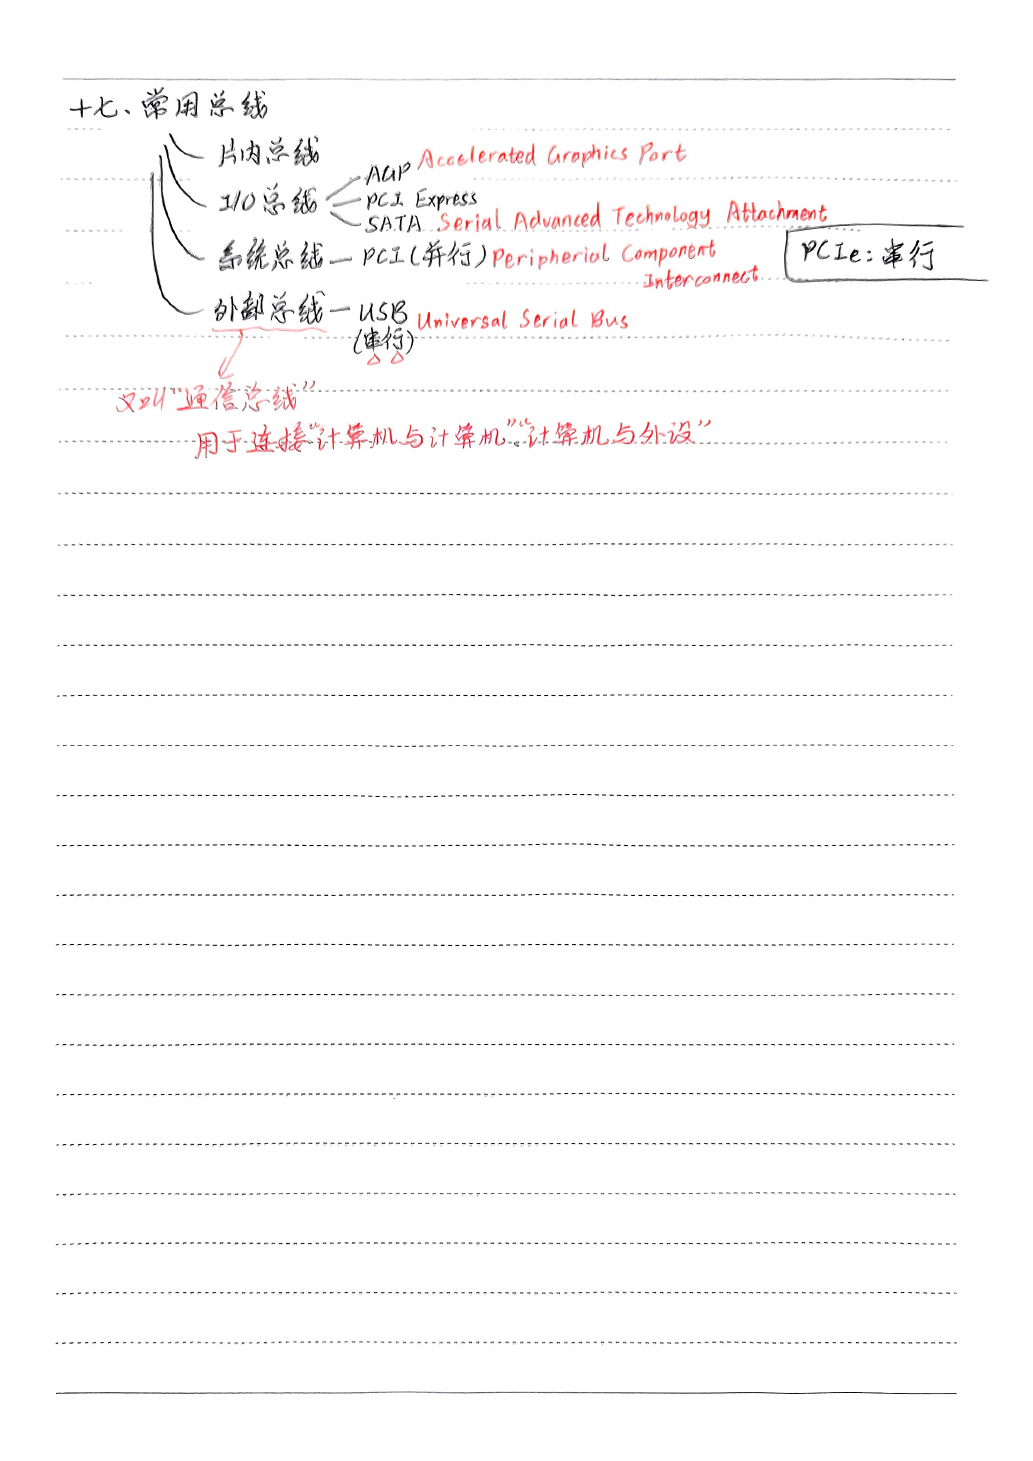 十七、常用总线
片内总线
I/O总线
AGP Accelerated Graphics Port
PCI Express
SATA Serial Advanced Technology Attachment
系统总线 — PCI(并行) Peripherial Component
Interconnect
PCIe: 串行
外部总线 — USB Universal Serial Bus
(串行)
又叫“通信总线”
用于连接“计算机与计算机”“计算机与外设”